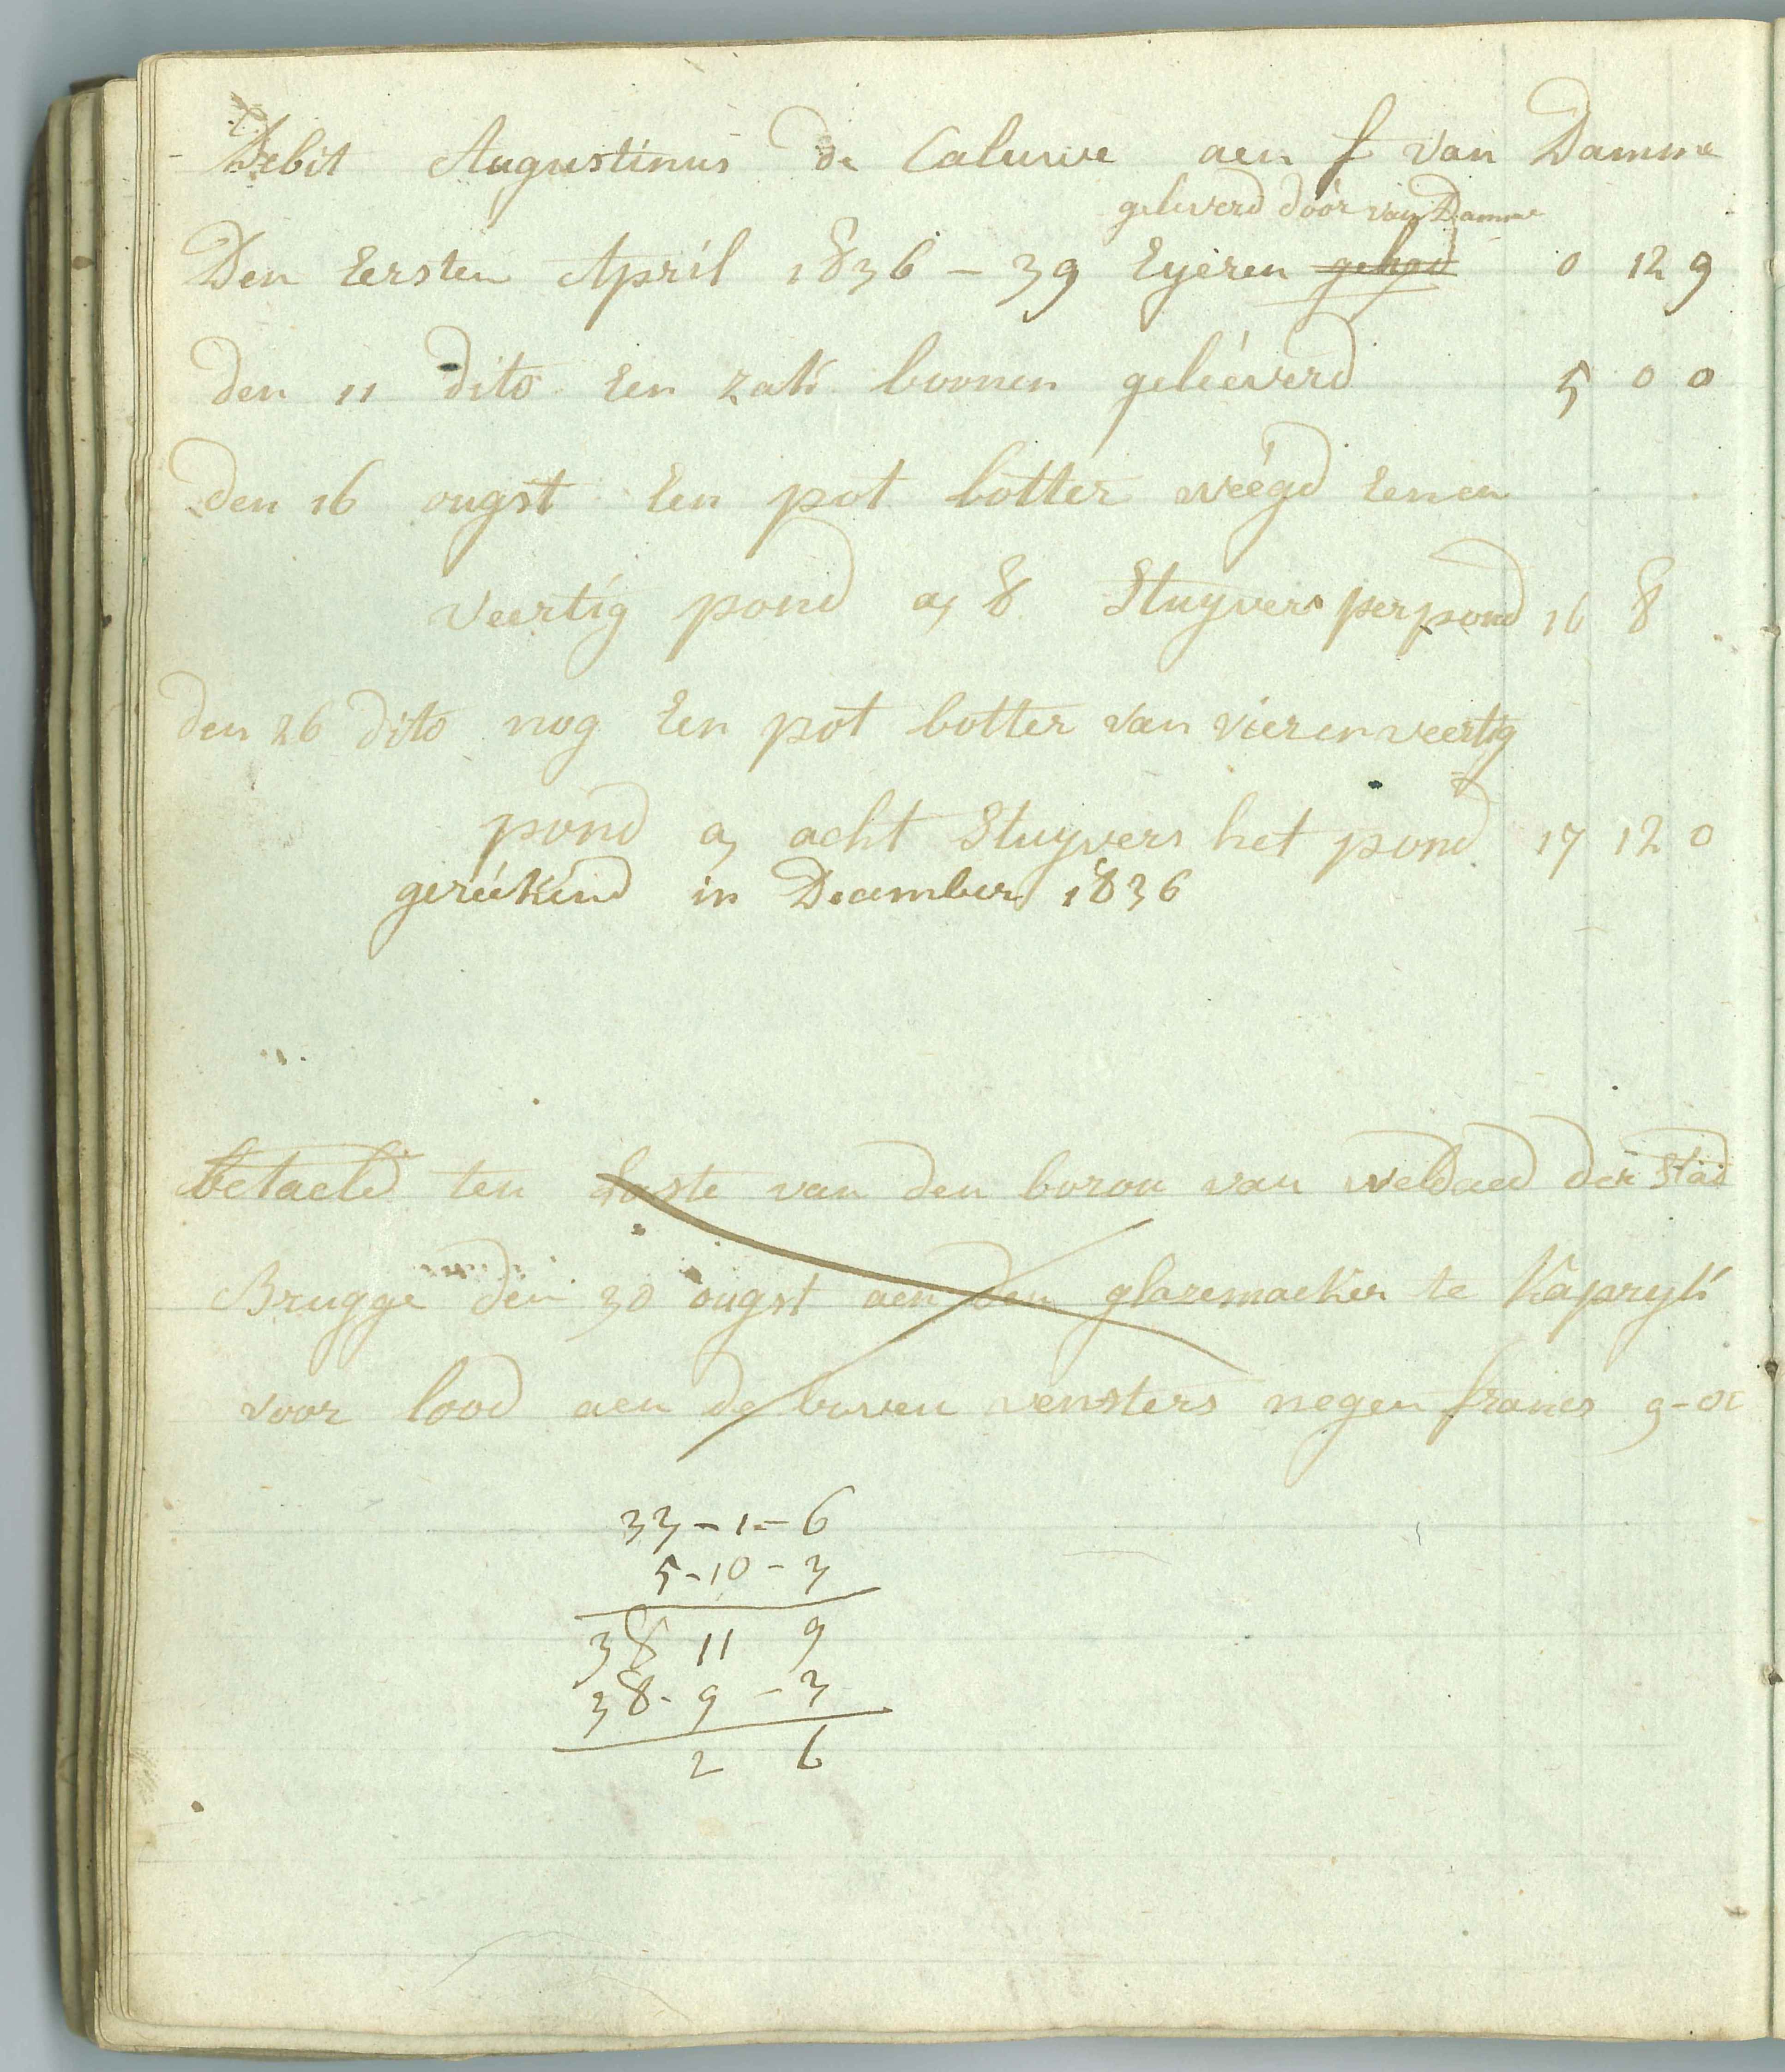 Debit Augustinus De Caluwe aen f van Damme
geleverd door van Damme
Den Eersten April 1836 - 39 Eyeren gehad 0 12 9
den 11 dito Een zak boonen geléeverd 5 0 0
den 16 ougst Een pot botter wéégd Eenen
veertig pond a 8 Stuyvers per pond 16 8
den 26 dito nog Een pot botter van vierenveertig
pond a acht Stuyvers het pond 17 12 0
geréékend in December 1836
betaeld ten Laste van den burou van weldaed der Stad
Brugge den 30 ougst aen den glazemaeker te Kapryk
voor lood aen de boven vensters negen francs 9-0
33-1-6
5-10-3
38 11 9
38-9-3
2 6